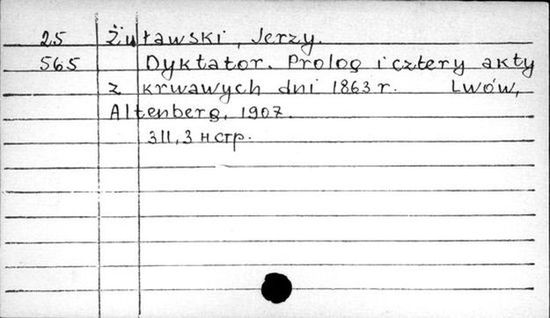 25 Żuławski, Jerzy.
565 Dyktator. Prolog i cztery akty
z krwawych dni 1863 r. Lwów,
Altenberg, 1907.
311, 3 н стр.